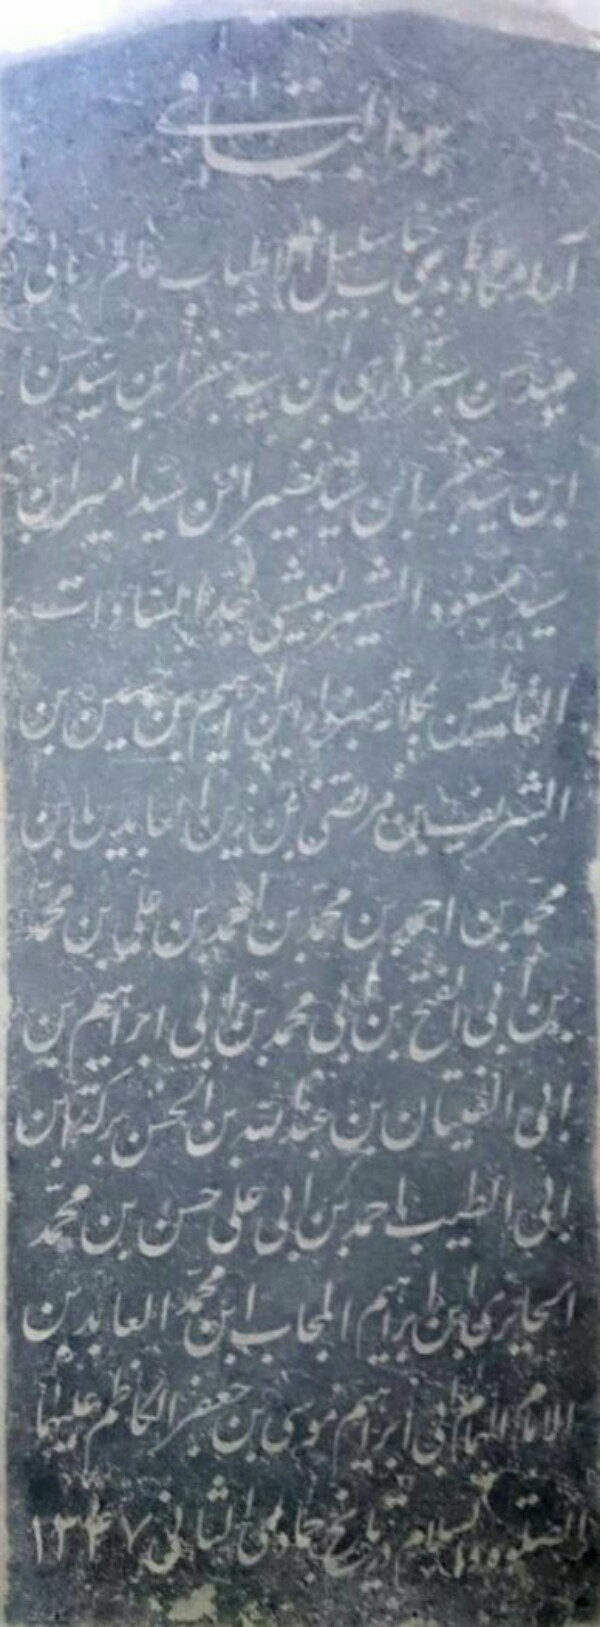 هو الباقی
آرامگاه سلیل الاطیاب عالم ربانی
سید حسن سبزواری ابن سید جعفر ابن سید حسن
ابن سید جعفر ابن سید نصیر ابن سید امیر ابن
سید مسعود الشهیر جد السادات
الفاطمیین سبزوار ابن ابراهیم بن حسین بن
الشریف بن مرتضی بن زین العابدین بن
محمد بن احمد بن محمد بن احمد بن علی بن محمد
بن ابی الفتح بن ابی محمد بن ابی ابراهیم بن
ابی الفتیان بن عبدالله بن الحسن برکة ابن
ابی الطیب احمد بن ابی علی حسن بن محمد
الحایری ابن ابراهیم المجاب ابن محمد العابد بن
الامام الهمام ابی ابراهیم موسی بن جعفر الکاظم علیهما
الصلوة والسلام در تاریخ جمادی الثانی ۱۳۴۷